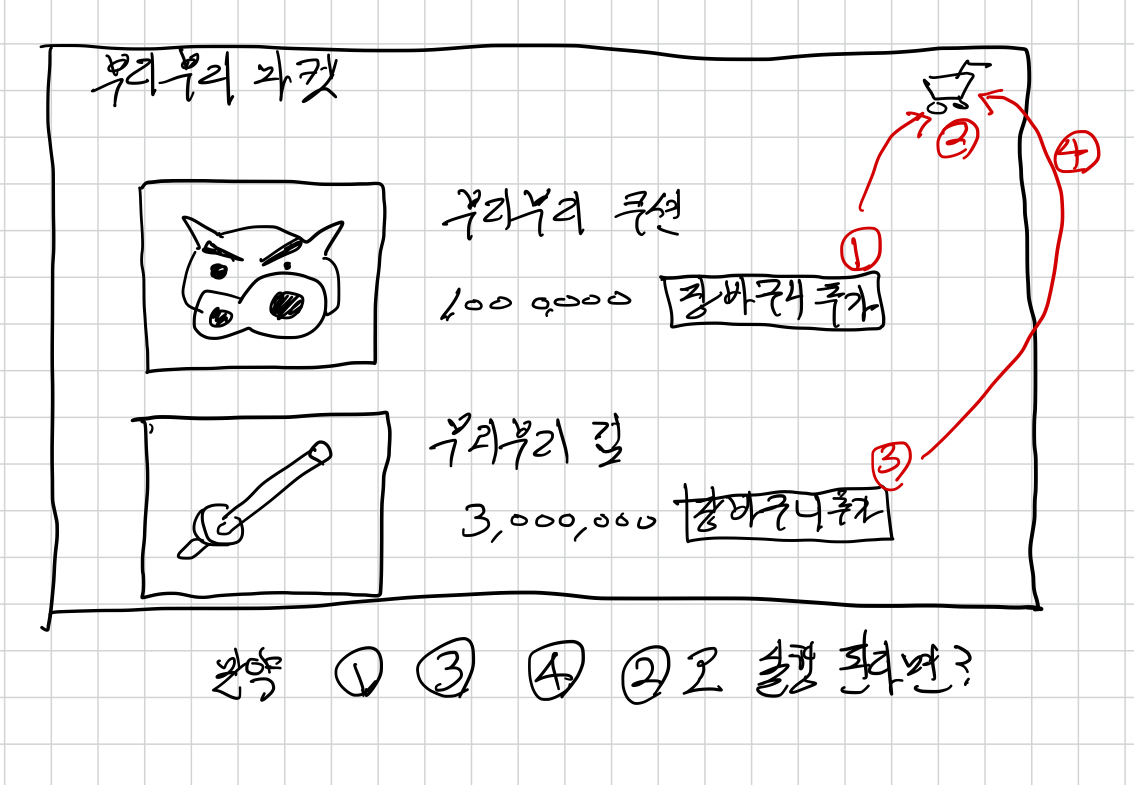 부리부리 마켓
②
④
부리부리 쿠션
①
1,000,000 장바구니 추가
부리부리 검
③
3,000,000 장바구니 추가
만약 ① ③ ④ ②로 실행 된다면?